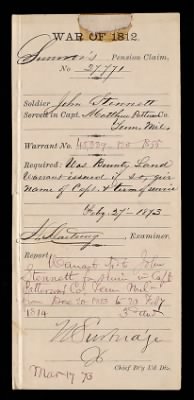 WAR OF 1812.
Survivor's Pension Claim.
No 27771
Soldier John Stennett
Served in Capt. Matthew Patterson Co.
Tenn. Mil.
Warrant No. 120 1855
Required: Was Bounty Land
Warrant issued if so, give
name of Capt. & term of service
Feby. 27th 1873
Examiner.
Report
Warrant to John
Stennett for service in Capt
Patterson Co. Tenn Mil
from Dec 20 1813 to 20 Feby
1814
Chief B'y L'd Div.
Mar 17 73